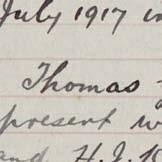 July 1917 in
Thomas
present w
and H. J.